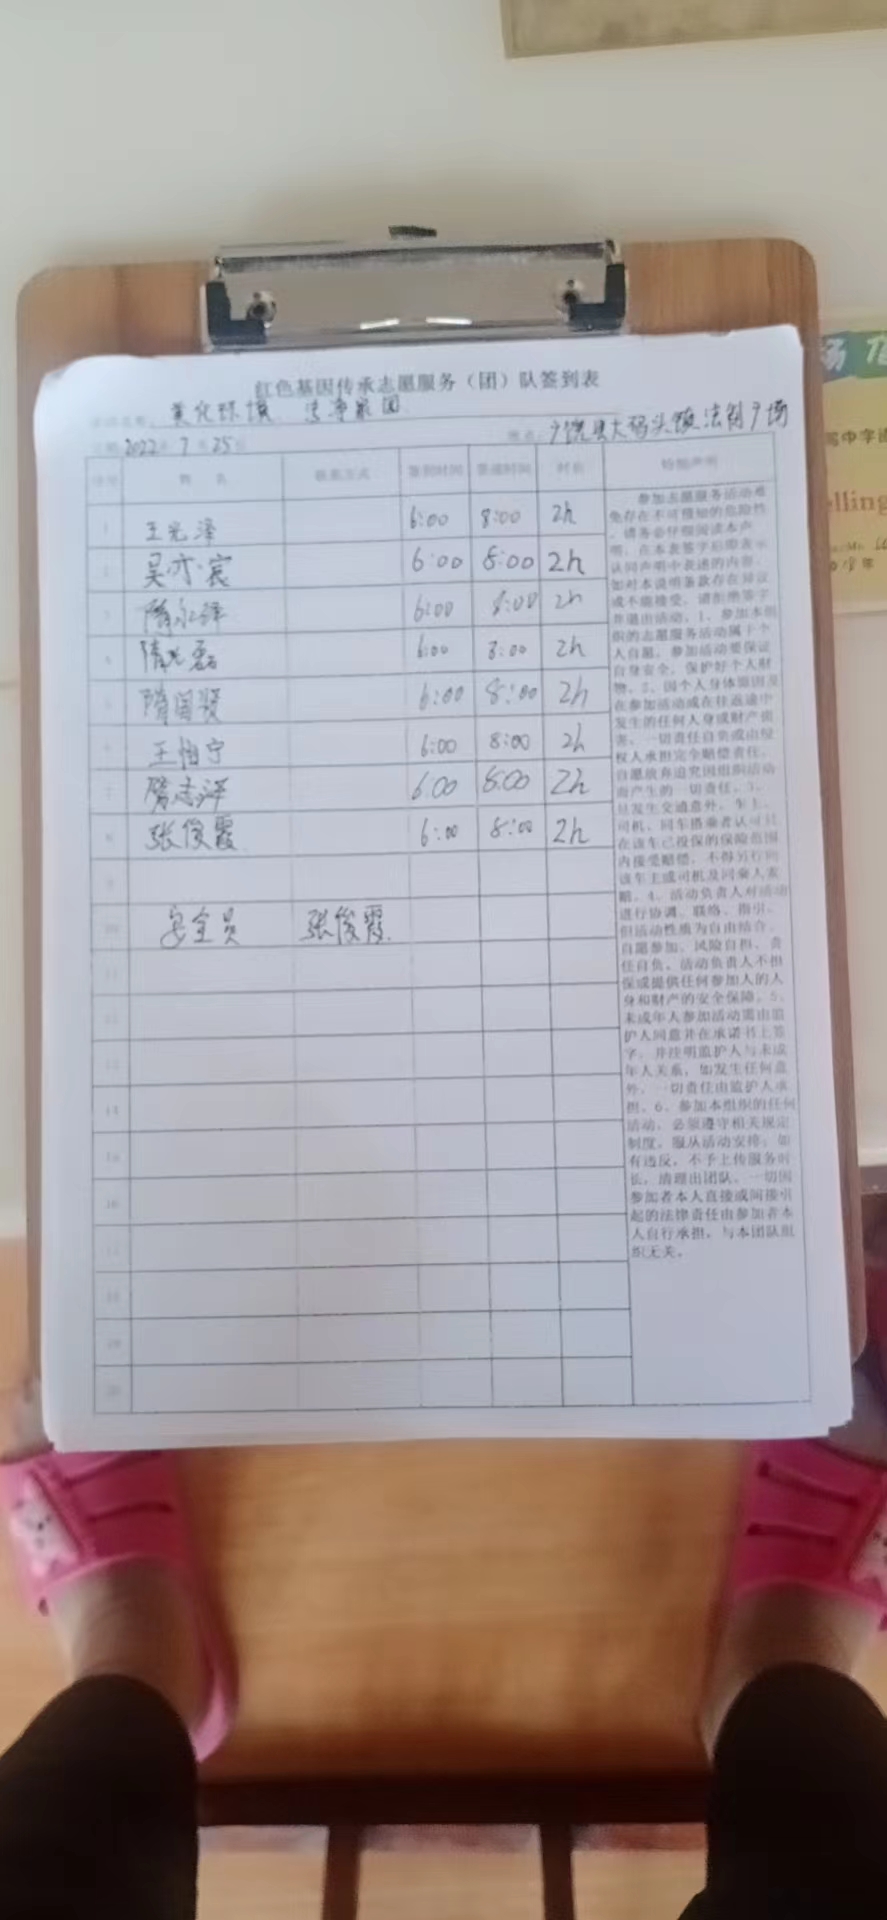 红色基因传承志愿服务（团）队签到表
美化环境 洁净家园
广饶县大码头镇法制广场
2022年7月25日
序号 姓名 联系方式 签到时间 签退时间 时长 特别声明
1 王光泽 6:00 8:00 2h
2 吴亦宸 6:00 8:00 2h
3 隋永泽 6:00 8:00 2h
4 隋光磊 6:00 8:00 2h
5 隋国贤 6:00 8:00 2h
6 王怡宁 6:00 8:00 2h
7 隋志洋 6:00 8:00 2h
8 张俊霞 6:00 8:00 2h
9
10 安全员 张俊霞
11
12
13
14
15
16
17
18
19
20
参加志愿服务活动难
免存在不可预知的危险性
，请务必仔细阅读本声
明，在本表签字后即表示
认同声明中表述的内容。
如对本说明条款存在异议
或不能接受，请拒绝签字
并退出活动。1、参加本组
织的志愿服务活动属于个
人自愿，参加活动要保证
自身安全，保护好个人财
物。2、因个人身体原因及
在参加活动或在往返途中
发生的任何人身或财产损
害，一切责任自负或由侵
权人承担完全赔偿责任。
自愿放弃追究因组织活动
而产生的一切责任。3、
旦发生交通意外，车主、
司机、同车搭乘者认可只
在该车已投保的保险范围
内接受赔偿，不得另行向
该车主或司机及同乘人索
赔。4、活动负责人对活动
进行协调、联络、指引，
但活动性质为自由结合、
自愿参加、风险自担、责
任自负。活动负责人不担
保或提供任何参加人的人
身和财产的安全保障。5、
未成年人参加活动需由监
护人同意并在承诺书上签
字，并注明监护人与未成
年人关系，如发生任何意
外，一切责任由监护人承
担。6、参加本组织的任何
活动，必须遵守相关规定
制度，服从活动安排；如
有违反，不予上传服务时
长，清理出团队。一切因
参加者本人直接或间接引
起的法律责任由参加者本
人自行承担，与本团队组
织无关。